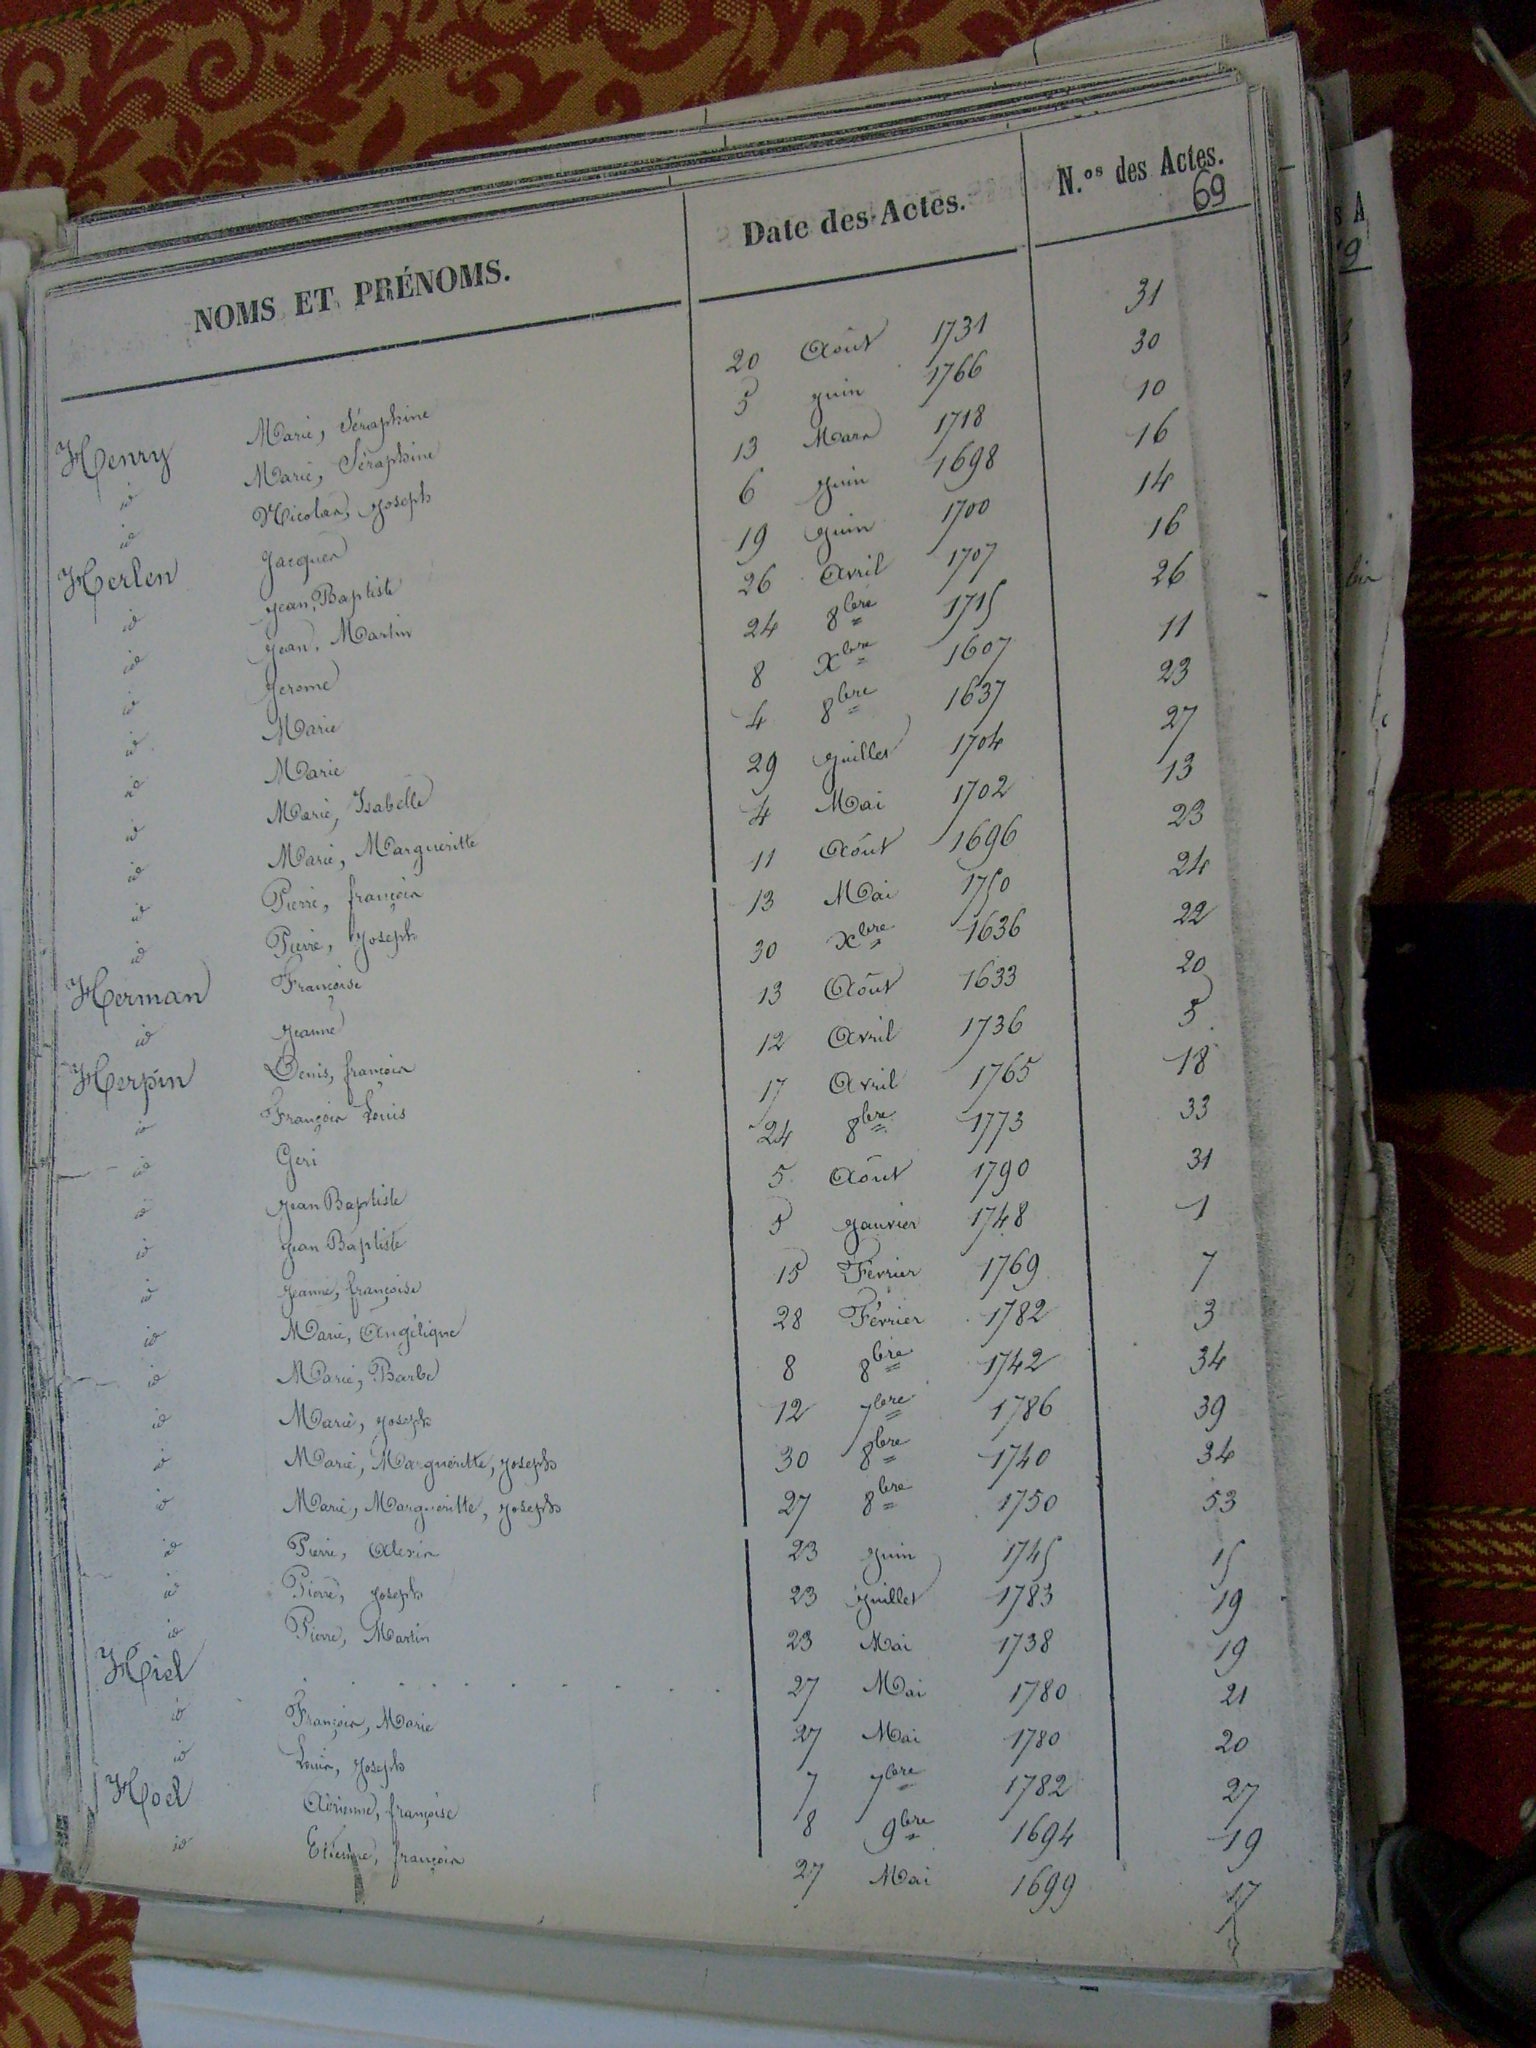 NOMS ET PRÉNOMS. Date des Actes. N.os des Actes.
69
Henry Marie, Séraphine 20 Août 1731 31
id Marie, Séraphine 5 Juin 1766 30
id Nicolas, Joseph 13 Mars 1718 10
Herlen Jacques 6 Juin 1698 16
id Jean, Baptiste 19 Juin 1700 14
id Jean, Martin 26 Avril 1707 16
id Jerome 24 8bre 1715 26
id Marie 8 Xbre 1607 11
id Marie 4 8bre 1637 23
id Marie, Isabelle 29 Juillet 1704 27
id Marie, Margueritte 4 Mai 1702 13
id Pierre, françois 11 Août 1696 23
id Pierre, Joseph 13 Mai 1750 24
Herman Françoise 30 Xbre 1636 22
id Jeanne 13 Août 1633 20
Herpin Denis, françois 12 Avril 1736 5
id François Louis 17 Avril 1765 18
id Geri 24 8bre 1773 33
id Jean Baptiste 5 Août 1790 31
id Jean Baptiste 5 Janvier 1748 1
id Jeanne, françoise 15 Février 1769 7
id Marie, Angélique 28 Février 1782 3
id Marie, Barbe 8 8bre 1742 34
id Marie, Joseph 12 7bre 1786 39
id Marie, Margueritte, Joseph 30 8bre 1740 34
id Marie, Margueritte, Joseph 27 8bre 1750 53
id Pierre, Alexis 23 Juin 1745 15
id Pierre, Joseph 23 Juillet 1783 19
id Pierre, Martin 23 Mai 1738 19
Hiel . . . . . . . . . 27 Mai 1780 21
id François, Marie 27 Mai 1780 20
id Louis, Joseph 7 7bre 1782 27
Hoel Adrienne, françoise 8 9bre 1694 19
id Etienne, françois 27 Mai 1699 17